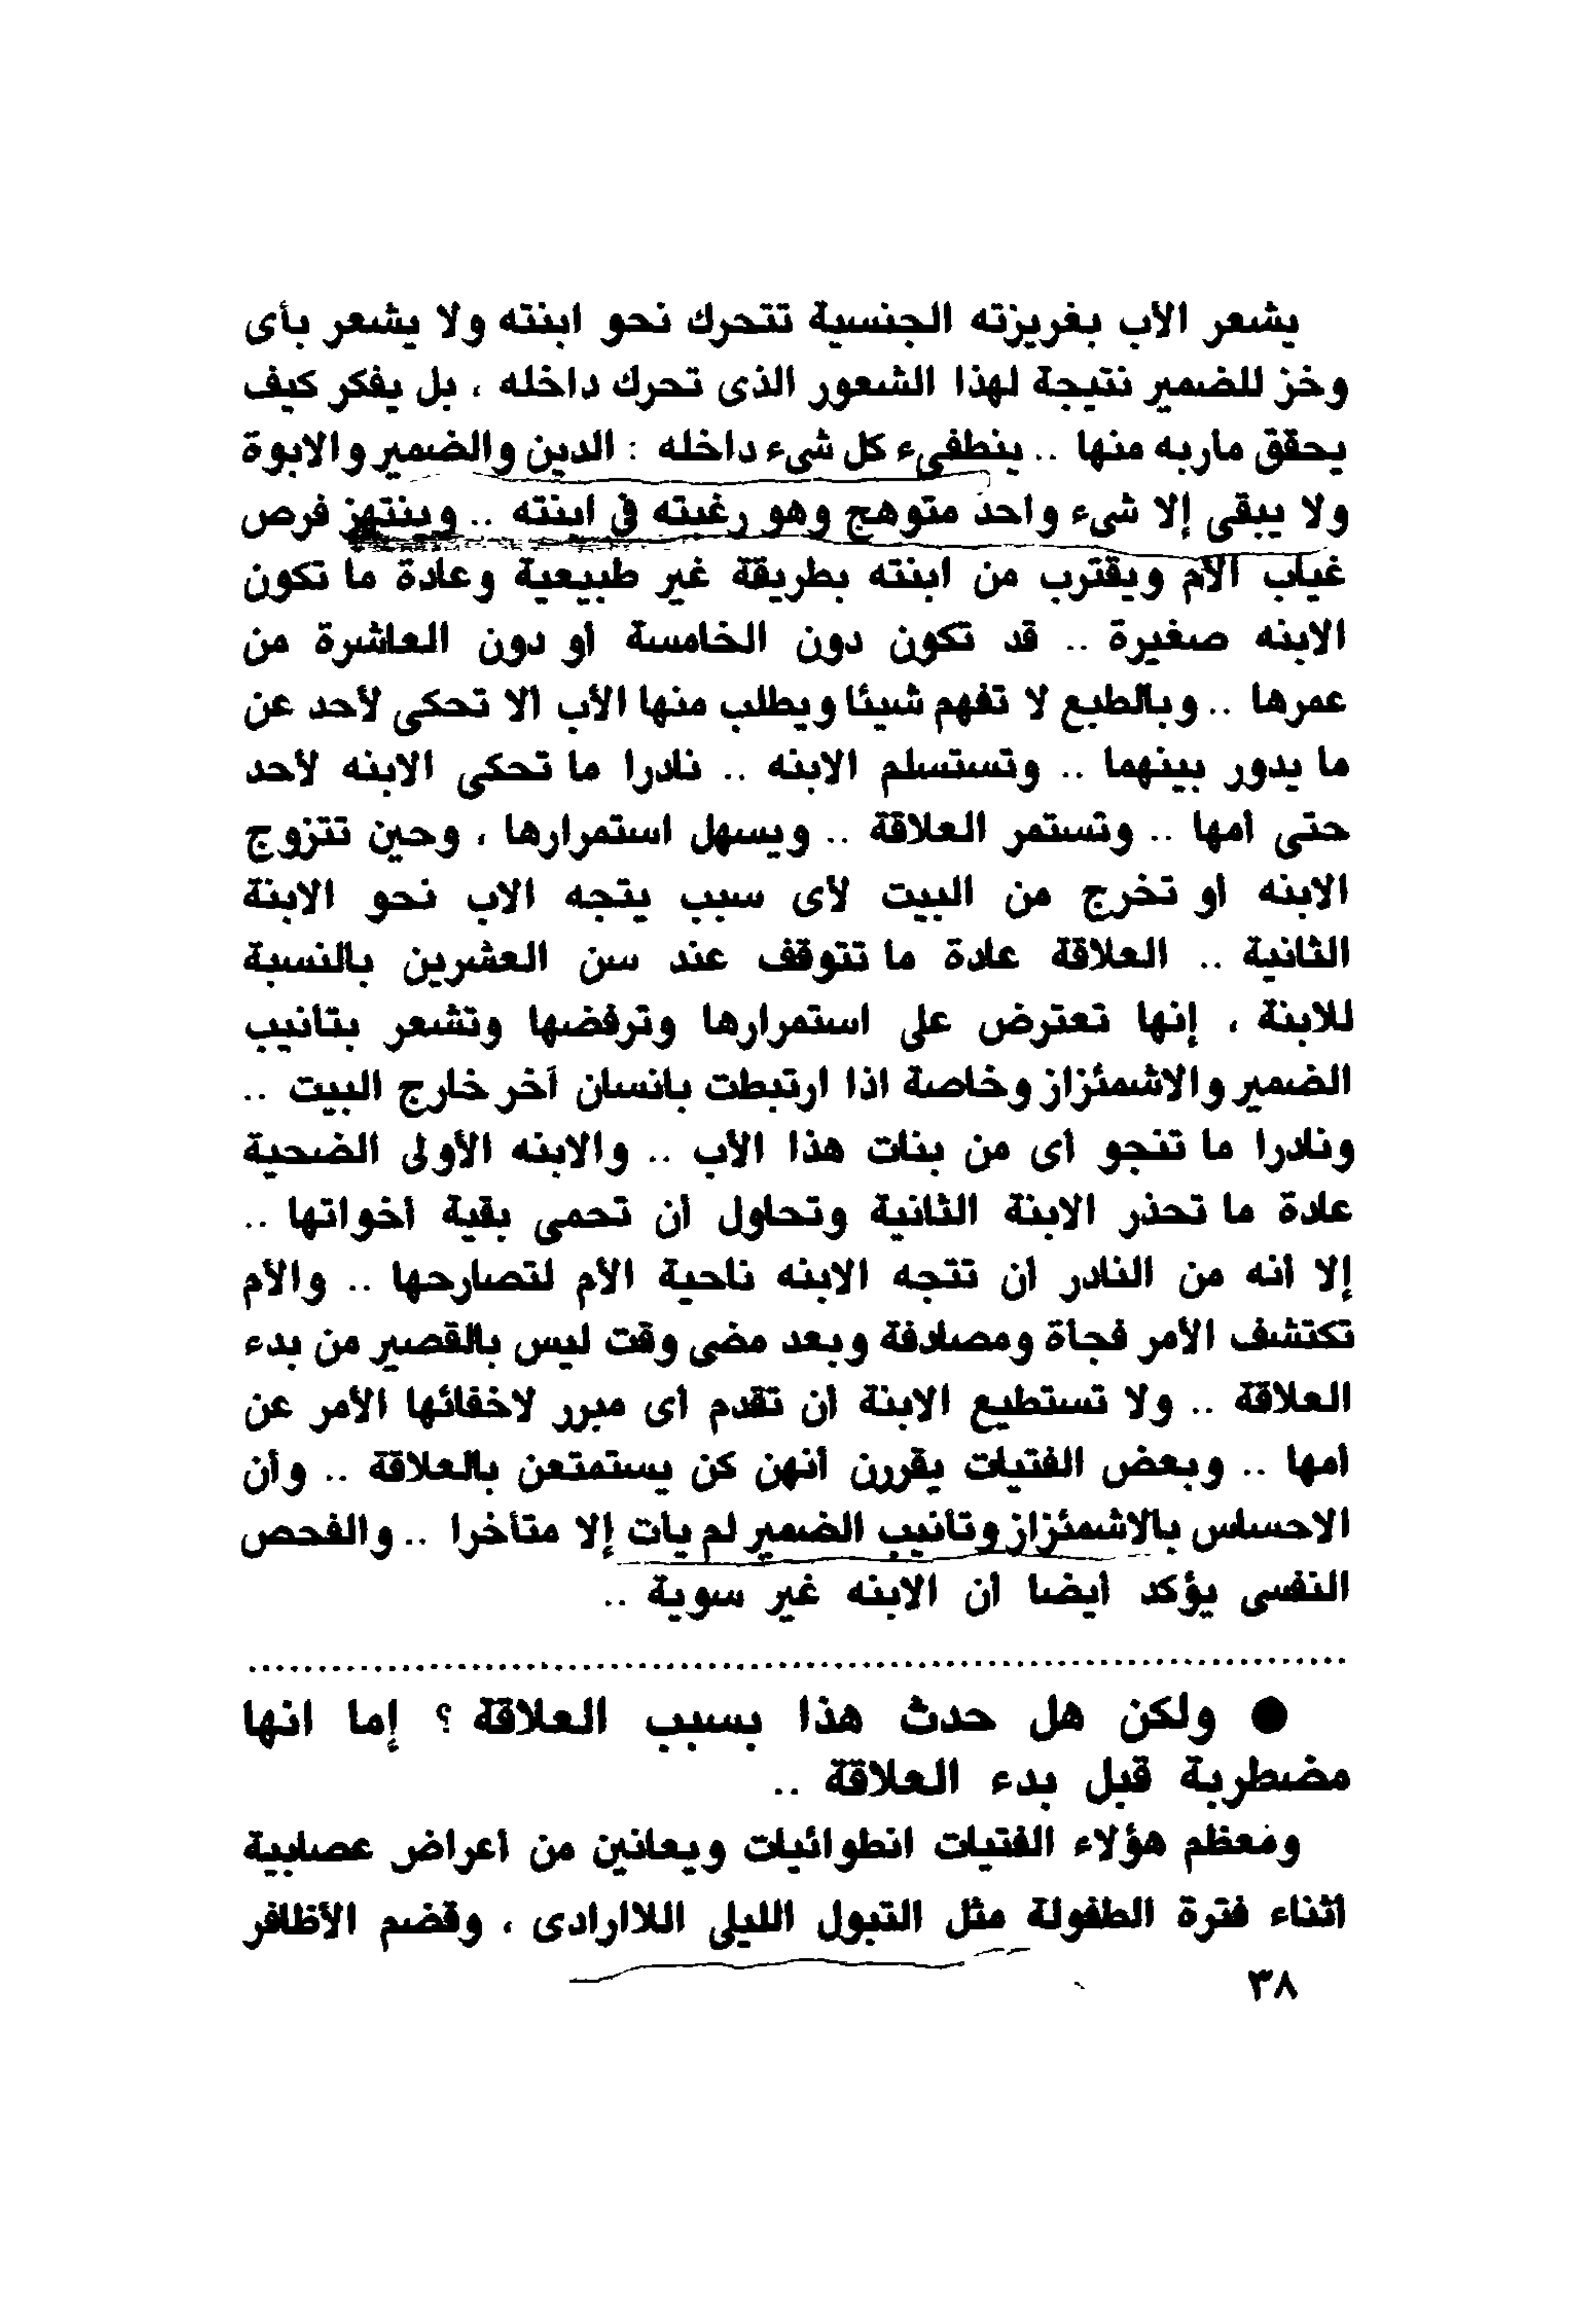 يشعر الأب بغريزته الجنسية تتحرك نحو ابنته ولا يشعر بأى
وخز للضمير نتيجة لهذا الشعور الذى تحرك داخله ، بل يفكر كيف
يحقق ماربه منها .. ينطفىء كل شىء داخله : الدين والضمير والابوة
ولا يبقى إلا شىء واحد متوهج وهو رغبته فى ابنته .. وينتهز فرص
غياب الأم ويقترب من ابنته بطريقة غير طبيعية وعادة ما تكون
الابنه صغيرة .. قد تكون دون الخامسة أو دون العاشرة من
عمرها .. وبالطبع لا تفهم شيئا ويطلب منها الأب ألا تحكى لأحد عن
ما يدور بينهما .. وتستسلم الابنه .. نادرا ما تحكى الابنه لأحد
حتى أمها .. وتستمر العلاقة .. ويسهل استمرارها ، وحين تتزوج
الابنه أو تخرج من البيت لأى سبب يتجه الاب نحو الابنة
الثانية .. العلاقة عادة ما تتوقف عند سن العشرين بالنسبة
للابنة ، إنها تعترض على استمرارها وترفضها وتشعر بتانيب
الضمير والاشمئزاز وخاصة اذا ارتبطت بانسان آخر خارج البيت ..
ونادرا ما تنجو أى من بنات هذا الأب .. والابنه الأولى الضحية
عادة ما تحذر الابنة الثانية وتحاول أن تحمى بقية أخواتها ..
إلا أنه من النادر أن تتجه الابنه ناحية الأم لتصارحها .. والأم
تكتشف الأمر فجأة ومصادفة وبعد مضى وقت ليس بالقصير من بدء
العلاقة .. ولا تستطيع الابنة أن تقدم أى مبرر لاخفائها الأمر عن
أمها .. وبعض الفتيات يقررن أنهن كن يستمتعن بالعلاقة .. وأن
الاحساس بالاشمئزاز وتأنيب الضمير لم يأت إلا متأخرا .. والفحص
النفسى يؤكد أيضا أن الابنه غير سوية ..
● ولكن هل حدث هذا بسبب العلاقة ؟ إما انها
مضطربة قبل بدء العلاقة ..
ومعظم هؤلاء الفتيات انطوائيات ويعانين من أعراض عصابية
أثناء فترة الطفولة مثل التبول الليلى اللاارادى ، وقضم الأظافر
٣٨